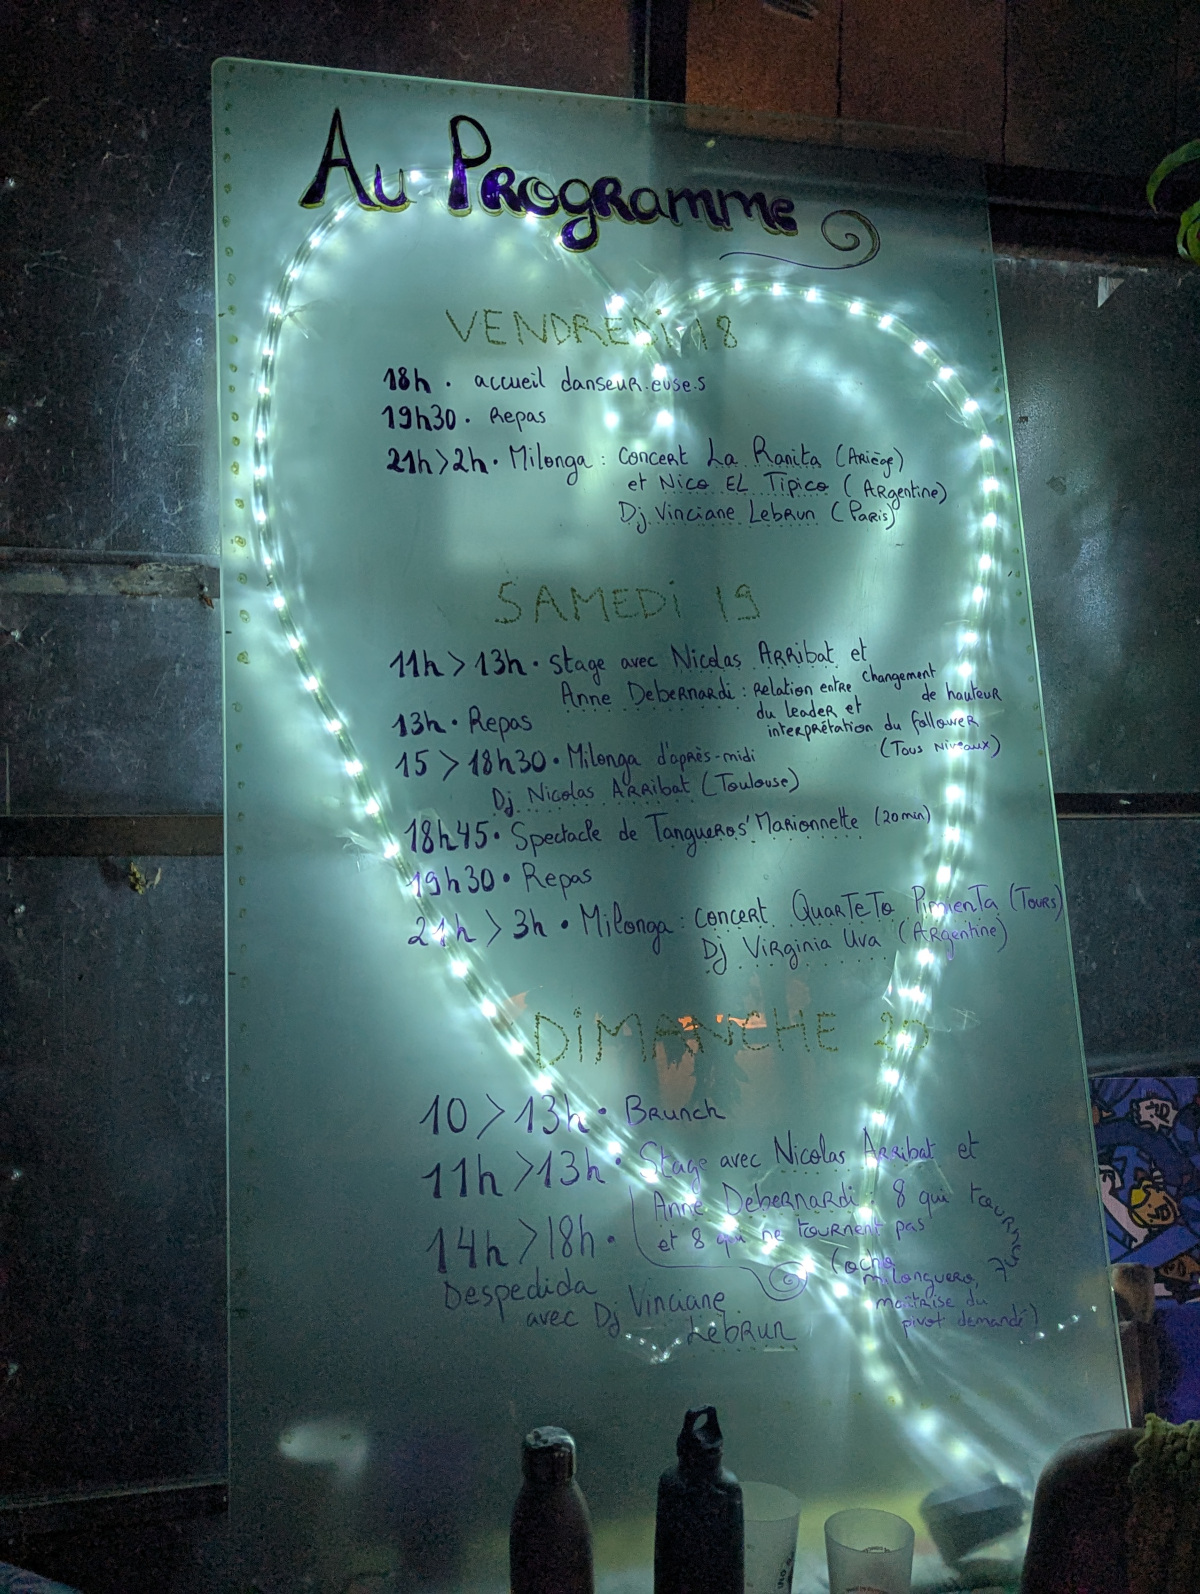 Au Programme
VENDREDI 18
18h • accueil danseur.euse.s
19h30 • Repas
21h > 2h • Milonga : Concert La Ranita (Ariège)
et Nico El Tipico (Argentine)
Dj Vinciane Lebrun (Paris)
SAMEDI 19
11h > 13h • Stage avec Nicolas Arribat et
Anne Debernardi : Relation entre changement
de hauteur
du leader et
interprétation du follower
(Tous niveaux)
13h • Repas
15 > 18h30 • Milonga d'après-midi
Dj Nicolas Arribat (Toulouse)
18h45 • Spectacle de Tangueros' Marionnette (20min)
19h30 • Repas
21h > 3h • Milonga : concert QuarTeTo PimienTa (Tours)
Dj Virginia Uva (Argentine)
DIMANCHE 20
10 > 13h • Brunch
11h > 13h • Stage avec Nicolas Arribat et
Anne Debernardi : 8 qui tournent
et 8 qui ne tournent pas
milonguero,
maîtrise du
pivot demandé)
14h > 18h •
Despedida
avec Dj Vinciane
Lebrun